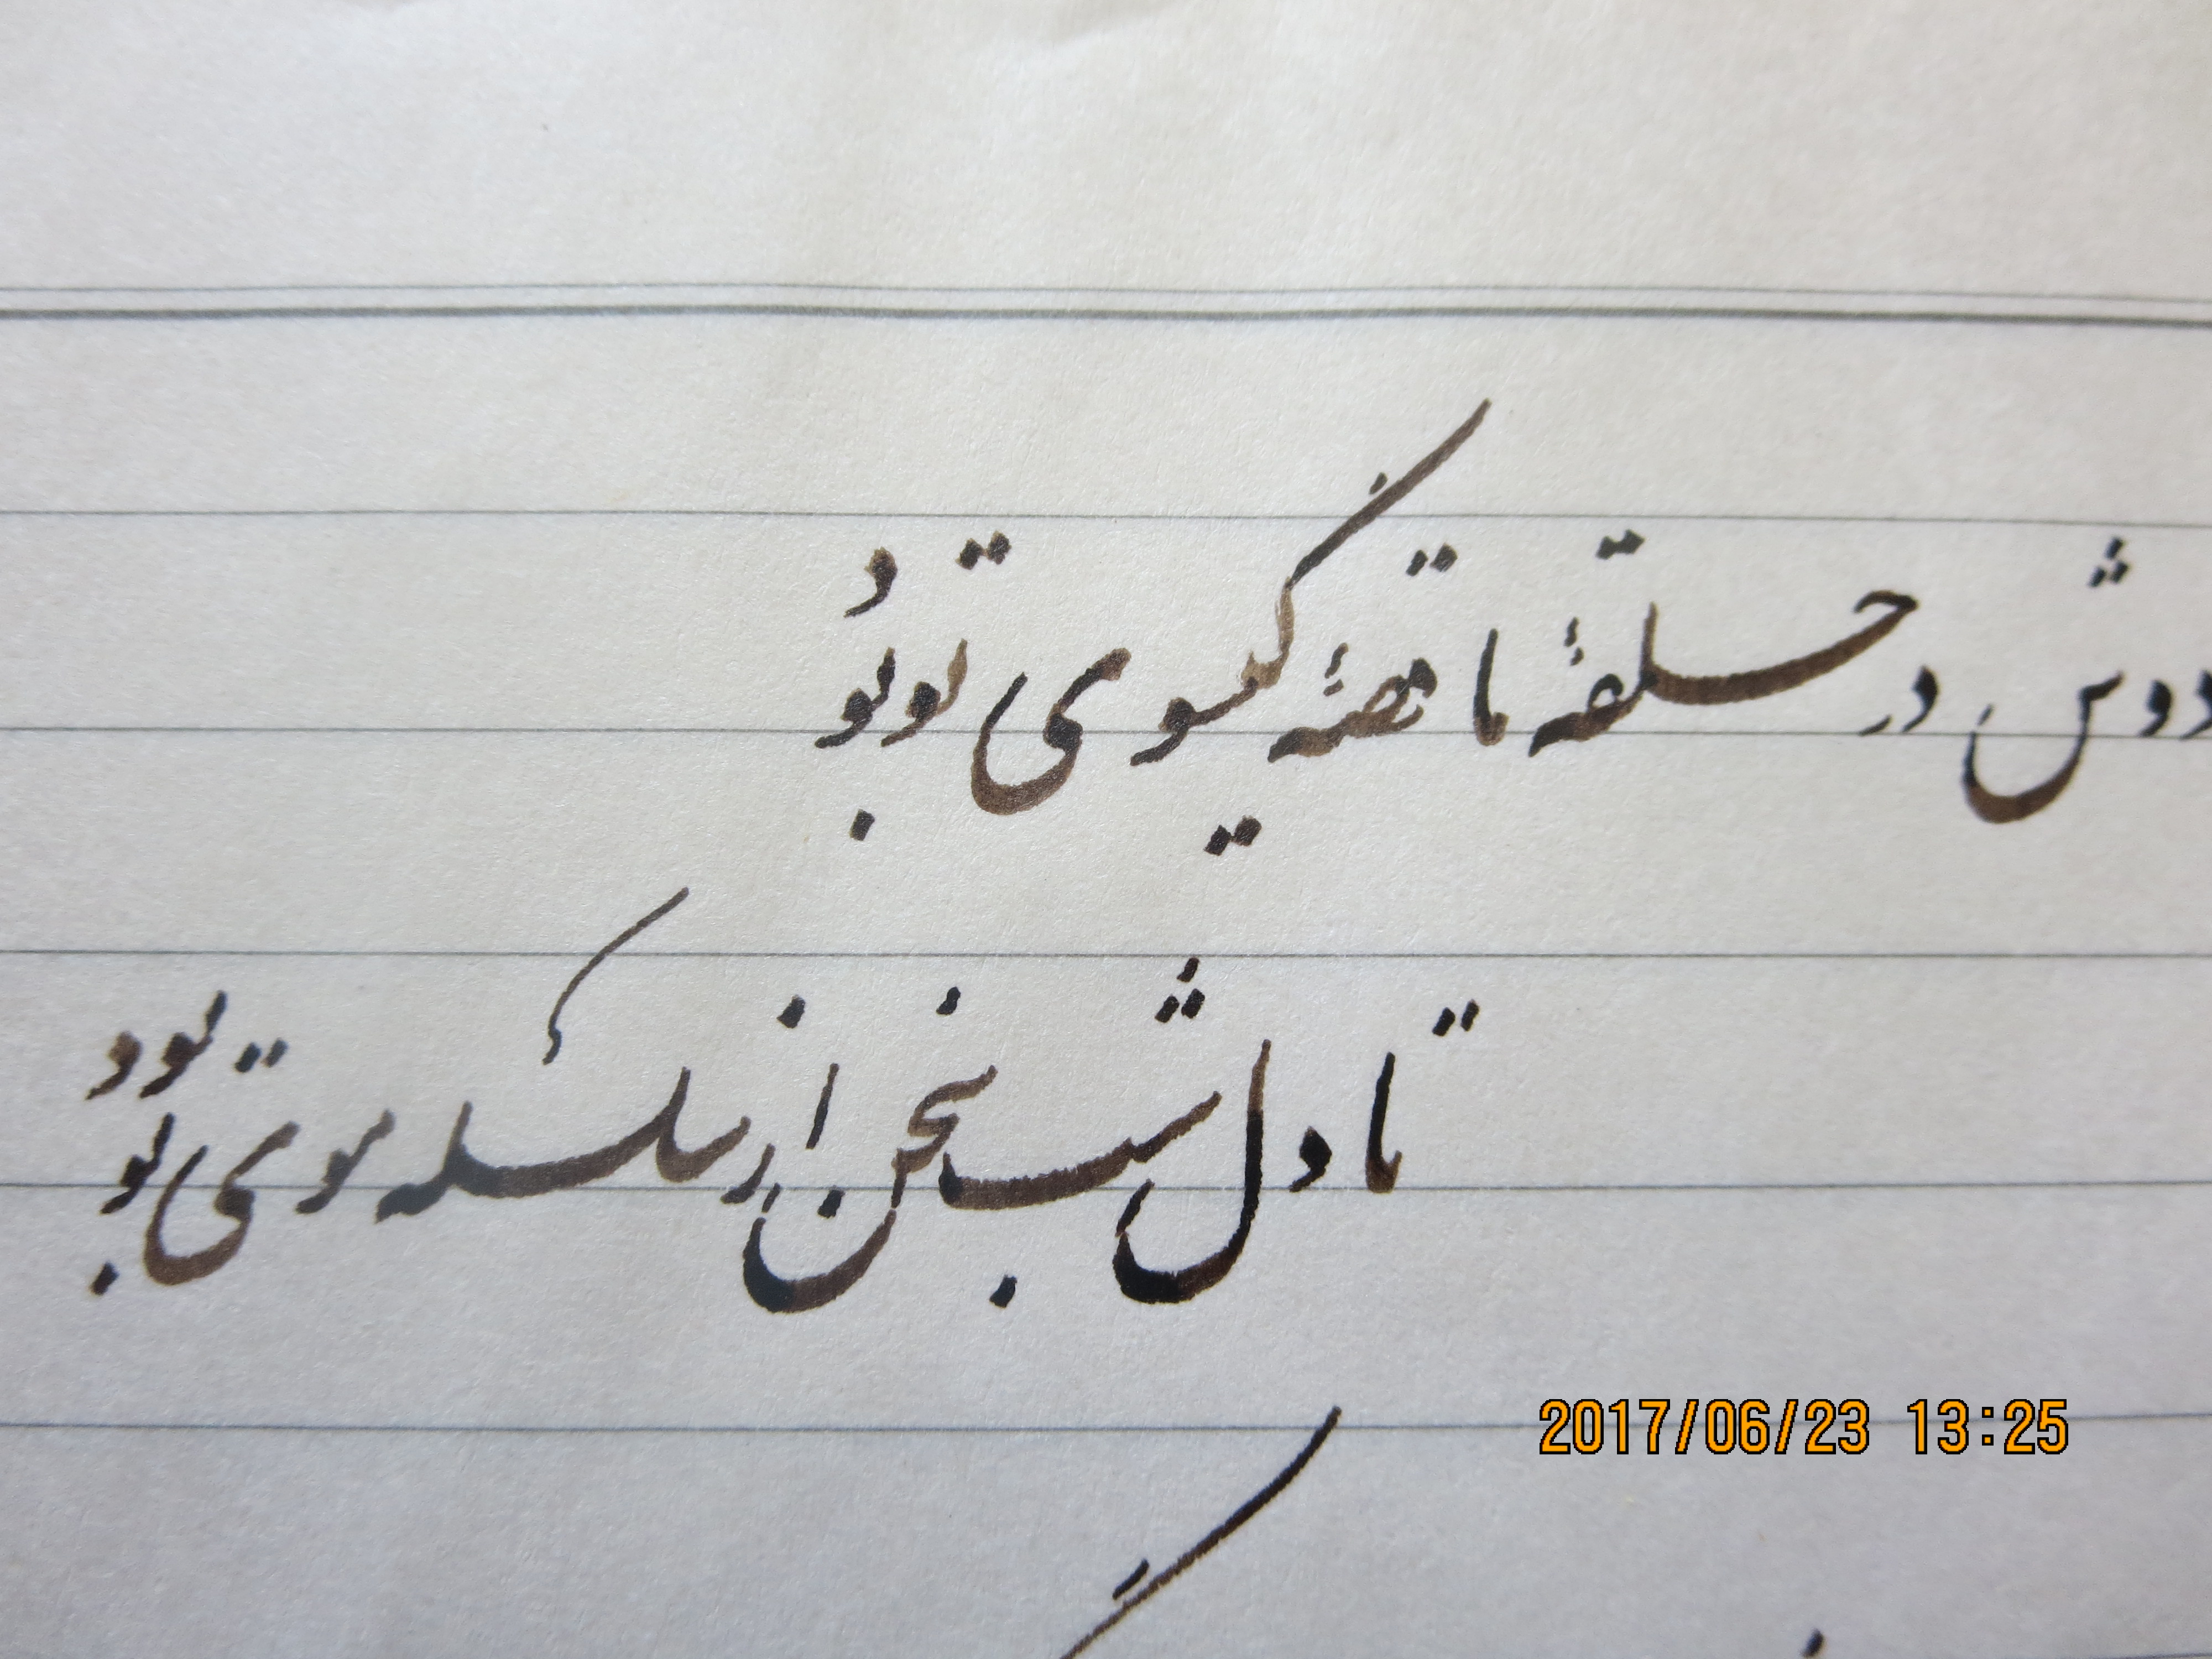 دوش در حلقهٔ ما قصهٔ گیسوی تو بود
تا دل شب سخن از سلسلهٔ موی تو بود
2017/06/23 13:25